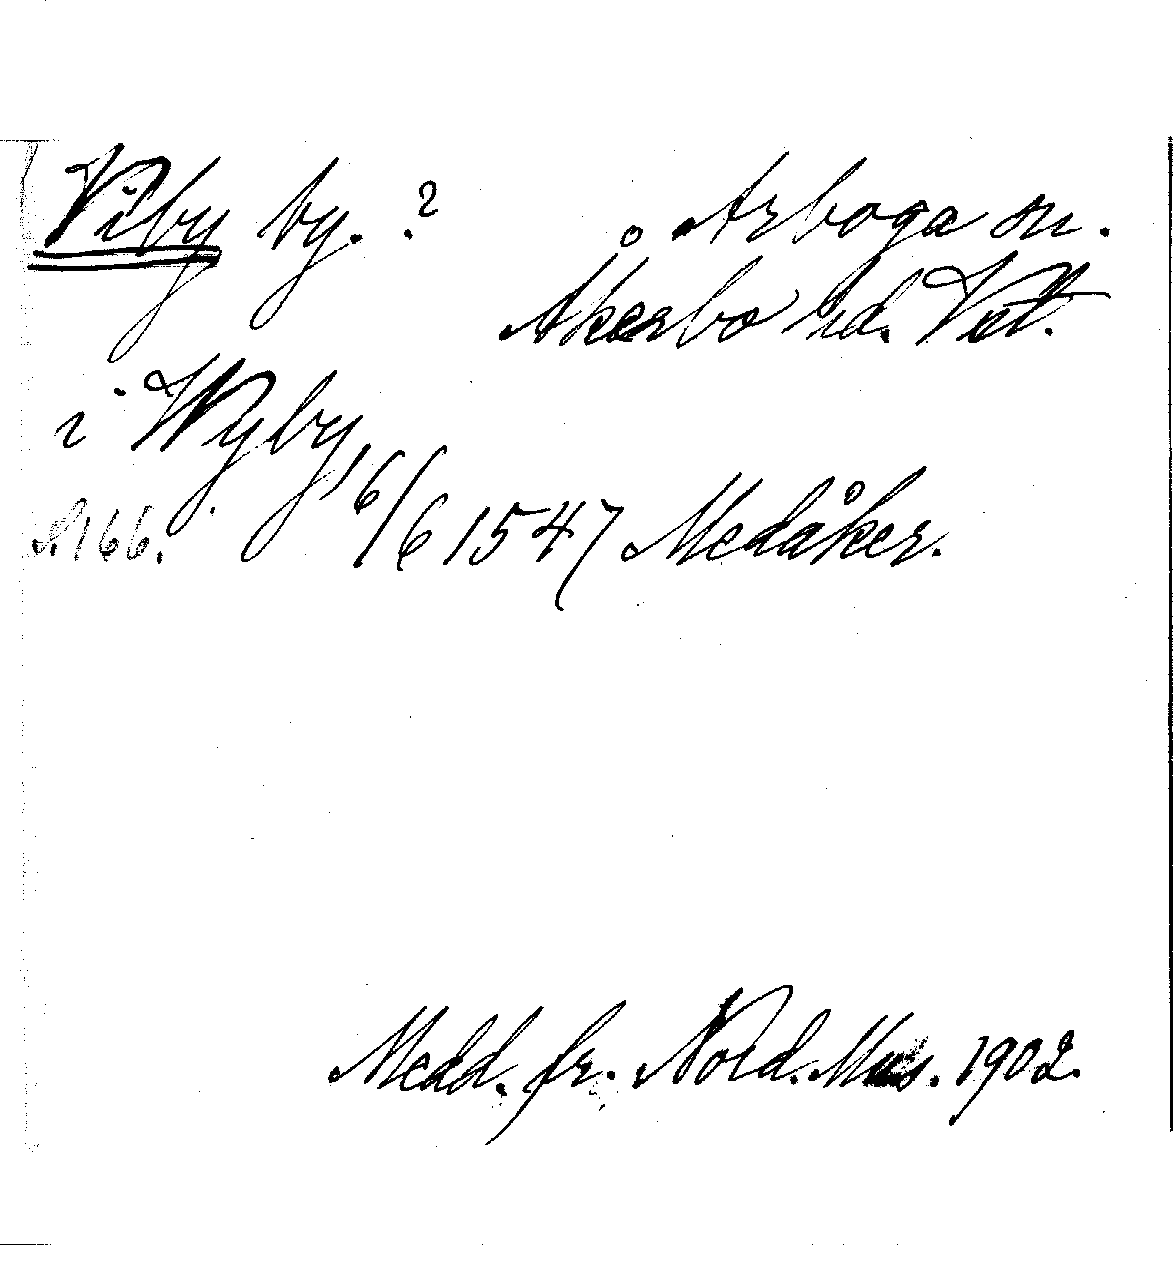 Viby by. ? Arboga sn.
Åkerbo hd. Vstl.
i Wyby 16/6 1547 Medåker.
s. 166.
Medd. fr. Nord. Mus. 1902.